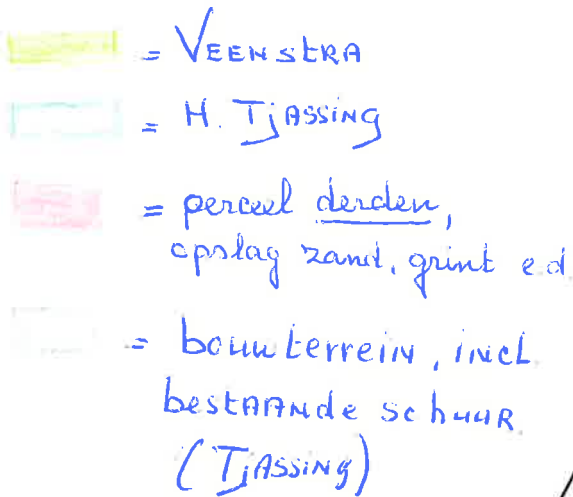 = VEENSTRA
= H. TJASSING
= perceel derden,
opslag zand, grint e.d.
= bouwterrein, incl.
bestAANde schuur
(TJASSING)